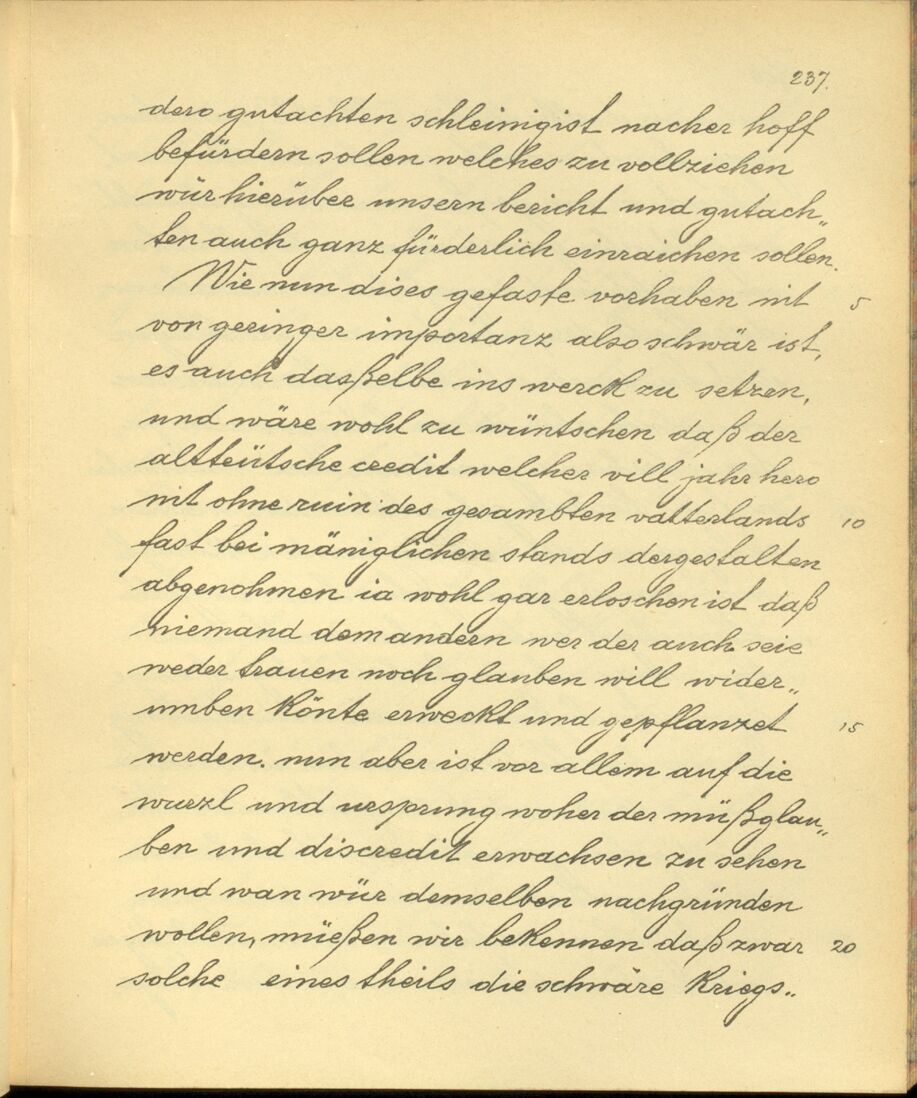 237.
dero gutachten schleinigist nacher hoff
befürdern sollen welches zu vollziehen
wür hierüber unsern bericht und gutach„
ten auch ganz fürderlich einraichen sollen.
Wie nun dises gefaste vorhaben nit 5
von geringer importanz also schwär ist,
es auch dasßelbe ins werck zu setzen,
und wäre wohl zu wüntschen daß der
altteütsche credit welcher vill jahr hero
nit ohne ruin des gesambten vatterlands 10
fast bei mäniglichen stands dergestalten
abgenohmen ia wohl gar erloschen ist daß
niemand dem andern wer der auch seie
weder trauen noch glauben will wider„
umben könte erweckt und gepflanzet 15
werden. nun aber ist vor allem auf die
wurzl und ursprung woher der müßglau„
ben und discredit erwachsen zu sehen
und wan wür demselben nachgründen
wollen, müeßen wir bekennen daß zwar 20
solche eines theils die schwäre Kriegs„